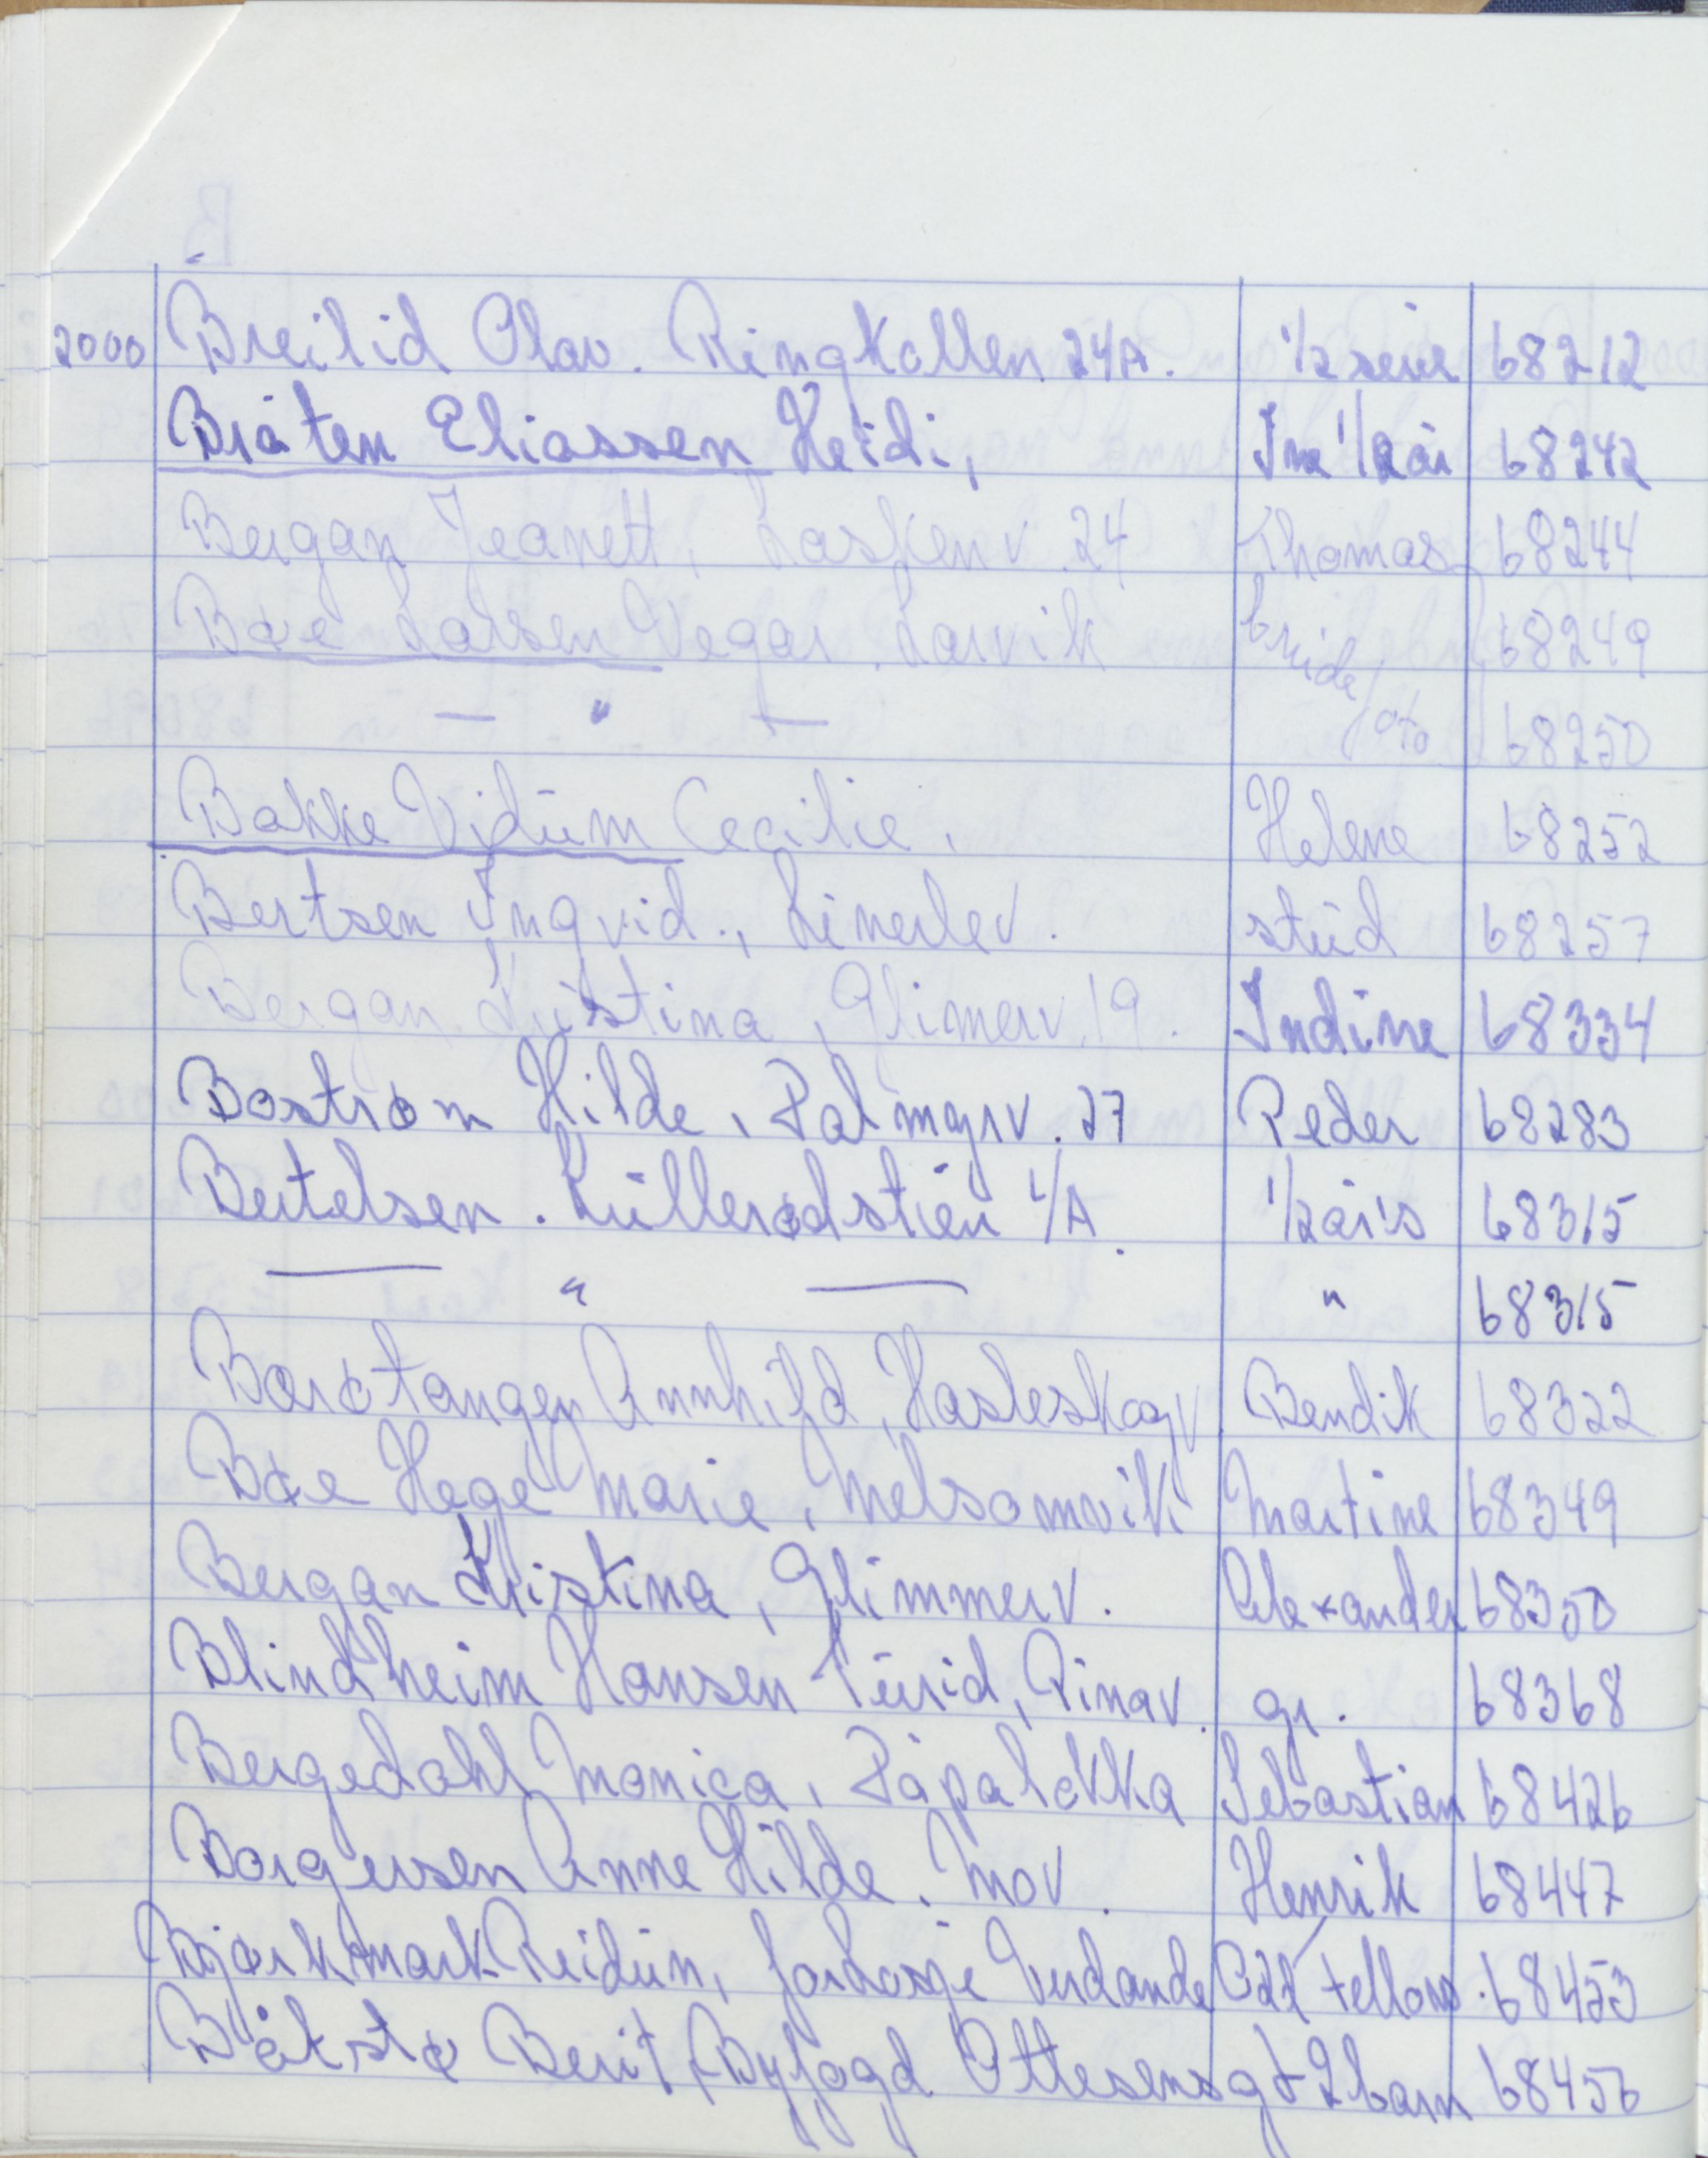 2000 Breilid Olav. Ringkollen 24A. 1/2 serie 68212
Bråten Eliassen Heidi, Ine 1/2 år 68242
Bergan Jeanett, Laskenv. 24 Thomas 68244
Bøe Larsen Vegar. Larvik brude 68249
— " — foto 68250
Bakke Vidum Cecilie. Helene 68252
Bertsen Ingvid., Linerlev. stud 68257
Bergan Kristina, Glimerv. 19. Indine 68334
Bostrøm Hilde, Palmgrv. 27 Peder 68283
Bertelsen. Kullerødstien 4/A. 1/2 år's 68315
— " — " 68315
Borøtangen Annhild, Hasleskogv Bendik 68322
Bøe Hege Marie, Melsomvik Martine 68349
Bergan Kristina, Glimmerv. Alexander 68350
Blindheim Hansen Turid, Rinav. gr. 68368
Bergedahl Monica, Påpaløkka Sebastian 68426
Borgersen Anne Hilde. Mov. Henrik 68447
Bjørkmark Reidun, Verdande Odd fellow. 68453
Båtstø Berit, Byfogd Ottesensgt 2 barn 68456